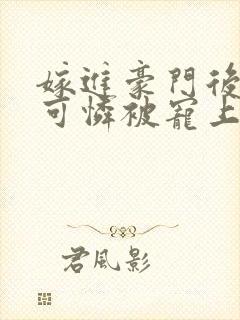 嫁進豪門後
可憐被寵上
君風影